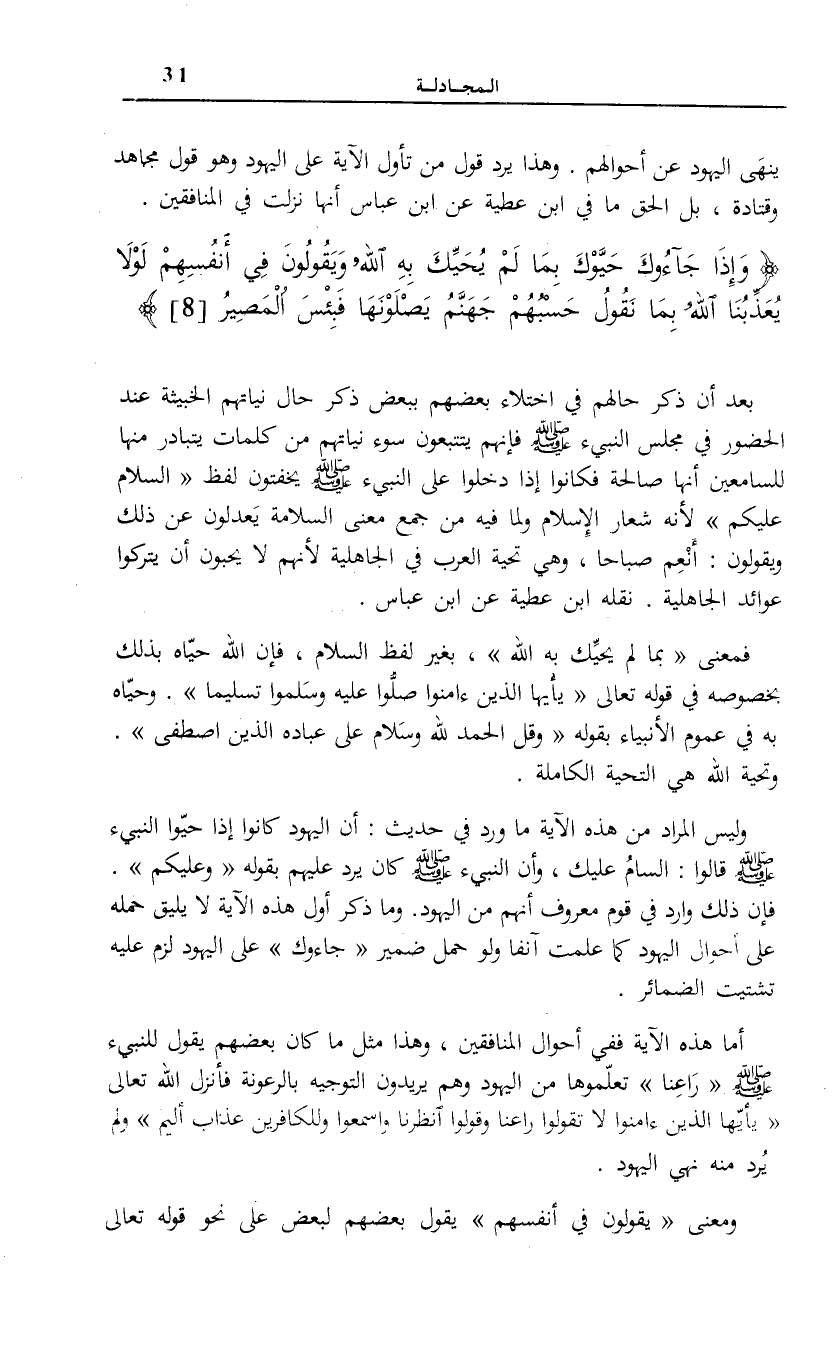 المجادلة
31
ينهَى اليهود عن أحوالهم . وهذا يرد قول من تأول الآية على اليهود وهو قول مجاهد
وقتادة ، بل الحق ما في ابن عطية عن ابن عباس أنها نزلت في المنافقين .
﴿ وَإِذَا جَآءُوكَ حَيَّوْكَ بِمَا لَمْ يُحَيِّكَ بِهِ ٱللهُ وَيَقُولُونَ فِي أَنفُسِهِمْ لَوْلَا
يُعَذِّبُنَا ٱللهُ بِمَا نَقُولُ حَسْبُهُمْ جَهَنَّمُ يَصْلَوْنَهَا فَبِئْسَ اُلْمَصِيرُ [8] ﴾
بعد أن ذكر حالهم في اختلاء بعضهم ببعض ذكر حال نياتهم الخبيثة عند
الحضور في مجلس النبيء ﷺ فإنهم يتتبعون سوء نياتهم من كلمات يتبادر منها
للسامعين أنها صالحة فكانوا إذا دخلوا على النبيء ﷺ يخفتون لفظ « السلام
عليكم » لأنه شعار الإسلام ولما فيه من جمع معنى السلامة يَعدلون عن ذلك
ويقولون : أَنْعِم صباحا ، وهي تحية العرب في الجاهلية لأنهم لا يحبون أن يتركوا
عوائد الجاهلية . نقله ابن عطية عن ابن عباس .
فمعنى « بما لم يحيِّك به الله » ، بغير لفظ السلام ، فإن الله حيّاه بذلك
بخصوصه في قوله تعالى « يأيها الذين ءامنوا صلُّوا عليه وسَلموا تسليما » . وحيّاه
به في عموم الأنبياء بقوله « وقل الحمد لله وسَلام على عباده الذين اصطفى » .
وتحية الله هي التحية الكاملة .
وليس المراد من هذه الآية ما ورد في حديث : أن اليهود كانوا إذا حيّوا النبيء
ﷺ قالوا : السامُ عليك ، وأن النبيء ﷺ كان يرد عليهم بقوله « وعليكم » .
فإن ذلك وارد في قوم معروف أنهم من اليهود. وما ذكر أول هذه الآية لا يليق حمله
على أحوال اليهود كما علمت آنفا ولو حمل ضمير « جاءوك » على اليهود لزم عليه
تشتيت الضمائر .
أما هذه الآية ففي أحوال المنافقين ، وهذا مثل ما كان بعضهم يقول للنبيء
ﷺ « رَاعِنا » تعلّموها من اليهود وهم يريدون التوجيه بالرعونة فأنزل الله تعالى
« يأيّها الذين ءامنوا لا تقولوا راعنا وقولوا آنظرنا واسمعوا وللكافرين عذاب أليم » ولم
يُرد منه نهي اليهود .
ومعنى « يقولون في أنفسهم » يقول بعضهم لبعض على نحو قوله تعالى